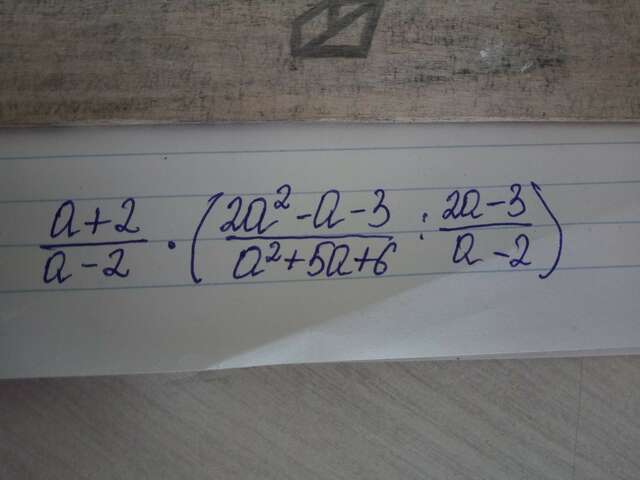 \frac{a+2}{a-2} \cdot \left( \frac{2a^2-a-3}{a^2+5a+6} : \frac{2a-3}{a-2} \right)